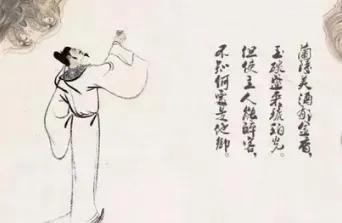 兰陵美酒郁金香，
玉碗盛来琥珀光。
但使主人能醉客，
不知何处是他乡。